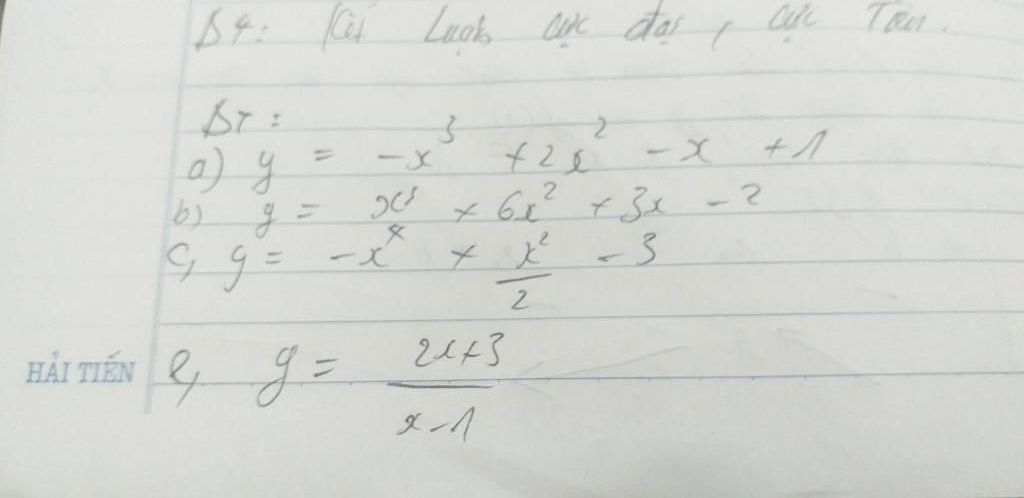 B4: Kết Luận cực đại, cực Tiểu.
BT:
a) y = -x³ + 2x² - x + 1
b) y = x³ + 6x² + 3x - 2
c, y = -x⁴ + x²/2 - 3
HẢI TIẾN e, y = 2x+3/x-1